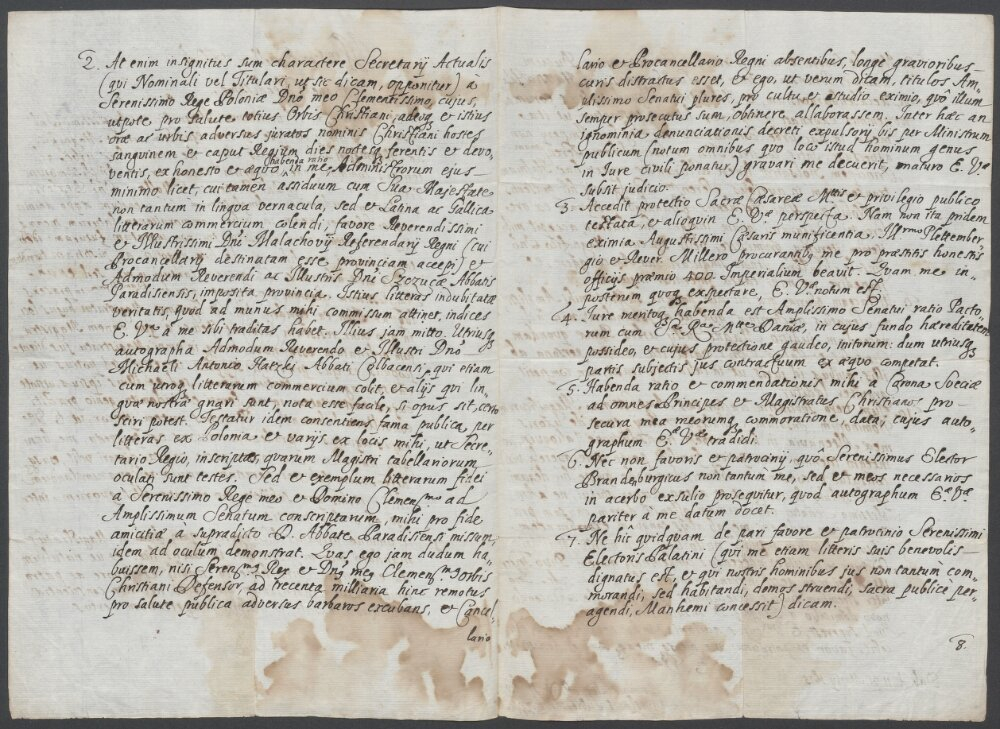 2. At enim insignitus sum charactere Secretarij Actualis
(qui Nominali vel Titulari, ut sic dicam, opponitur) à
Serenissimo Rege Poloniæ Dño meo Clementissimo, cujus,
utpote, pro salute totius Orbis Christiani, adeoq3 et istius
oræ ac urbis adversus juratos nominis Christiani hostes
sanguinem et caput Regium dies noctesq3 ferentis et devo-
ventis, ex honesto et æquo habenda ratio in me Administrorum ejus
minimo licet, cui tamen assiduum cum Sua Majestate
non tantum in lingva vernacula, sed et Latina ac Gallica
litterarum commercium colendi, favore Reverendissimi
et Illustrissimi Dñi Malachovij Referendarij Regni (cui
Procancellarij destinatam esse provinciam accepi) et
Admodum Reverendi ac Illustris Dñi Szozucæ Abbatis
Paradisiensis, imposita provincia. Istius litteras indubitatæ
veritatis, quod ad munus mihi commissum attinet, indices
E. Vª à me sibi traditas habet. Illius jam mitto. Utriusq3
autographa Admodum Reverendo et Illustri Dño
Michaeli Antonio Hatzki Abbati Colbacensi, qui etiam
cum utroq3 litterarum commercium colit, et alijs qui lin-
guæ nostræ gnari sunt, nota esse facile, si opus sit, certo
sciri potest. Testatur idem consentiens fama publica, per
litteras ex Polonia et varijs ex locis mihi, ut Secre-
tario Regio, inscriptas, quarum Magistri tabellariorum
oculati sunt testes. Sed et exemplum litterarum fidei
à Serenissimo Rege meo et Domino Clemen,mo ad
Amplissimum Senatum conscriptarum, mihi pro fide
amicitiæ à supradicto D. Abbate Paradisensi missum,
idem ad oculum demonstrat. Quas ego jam dudum ha
buissem, nisi Seren,mg Rex et Dñg meg Clemen,mg orbis
Christiani Defensor, ad trecenta milliaria hinc remotus
pro salute publica adversus barbaros excubans, et Cancel
lario
lario et Procancellario Regni absentibus, longè gravioribus
curis distractus esset, et ego, ut verum dicam, titulos Am-
plissimo Senatui plures, pro cultu et studio eximio, quô illum
semper prosecutus sum, obtinere allaborassem. Inter hæc an
ignominia denunciationis decreti expulsorij bis per Ministrum
publicum (notum omnibus quo loco istud hominum genus
in Jure civili ponatur) gravari me decuerit, maturo E. Væ
subsit judicio.
3. Accedit protectio Sacræ Cæsareæ Mttis et privilegio publico
testata, et alioquin E. Vª perspecta. Nam non ita pridem
eximia Augustissimi Cæsaris munificentia, Illrmo Plettember
gio et Rever. Millero procurantib9, me pro præstitis honestis
officijs præmio 400. Imperialium beavit. Quam me in
posterum quoq3 exspectare, E. Væ notum est.
4. Jure meritoq3 habenda est Amplissimo Senatui ratio Pacto-
rum cum Mtte Daniæ, in cujus fundo hæreditatem
possideo, et cujus protectione gaudeo, initorum: dum utriusq3
partis subjectis jus contractuum ex æquo competat.
5. Habenda ratio et commendationis mihi a Corona Sveciæ
ad omnes Principes et Magistratus Christianos pro
secura mea meorumq3 commoratione, data, cujus auto-
graphum Eæ Væ tradidi.
6. Nec non favoris et patrocinij, quô Serenissimus Elector
Brandeburgicus non tantum me, sed et meos necessarios
in acerbo exsilio prosequitur, quod autographum Eæ Væ
pariter à me datum docet.
7. Ne hîc quidquam de pari favore et patrocinio Serenissimi
Electoris Palatini (qui me etiam litteris suis benevolis
dignatus est, et qui nostris hominibus jus non tantum com-
morandi, sed habitandi, domos struendi, sacra publicè per-
agendi, Manhemi concessit) dicam.
8.